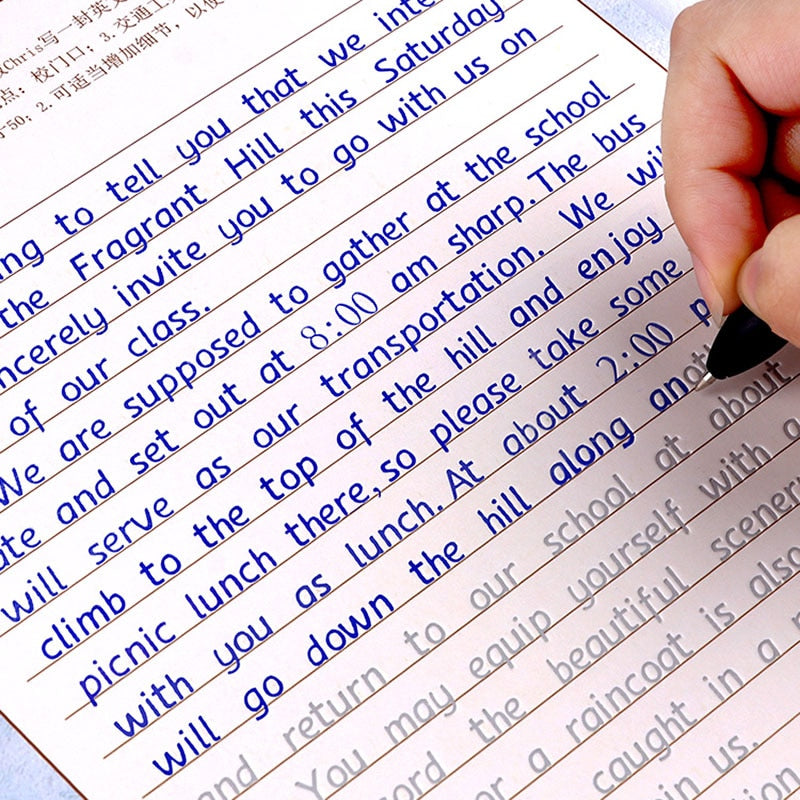 Chris写一封英文
点: 校门口; 3.交通工
50; 2.可适当增加细节, 以使
to tell you that we
the Fragrant Hill this Saturday
invite you to go with us on
of our class.
We are supposed to gather at the school
and set out at 8:00 am sharp. The bus
will serve as our transportation. We
climb to the top of the hill and enjoy
picnic lunch there, so please take some
with you as lunch. At about 2:00
will go down the hill along
and return to our school at about
You may equip yourself with a
the beautiful
or a raincoat is also
caught in a
in us.